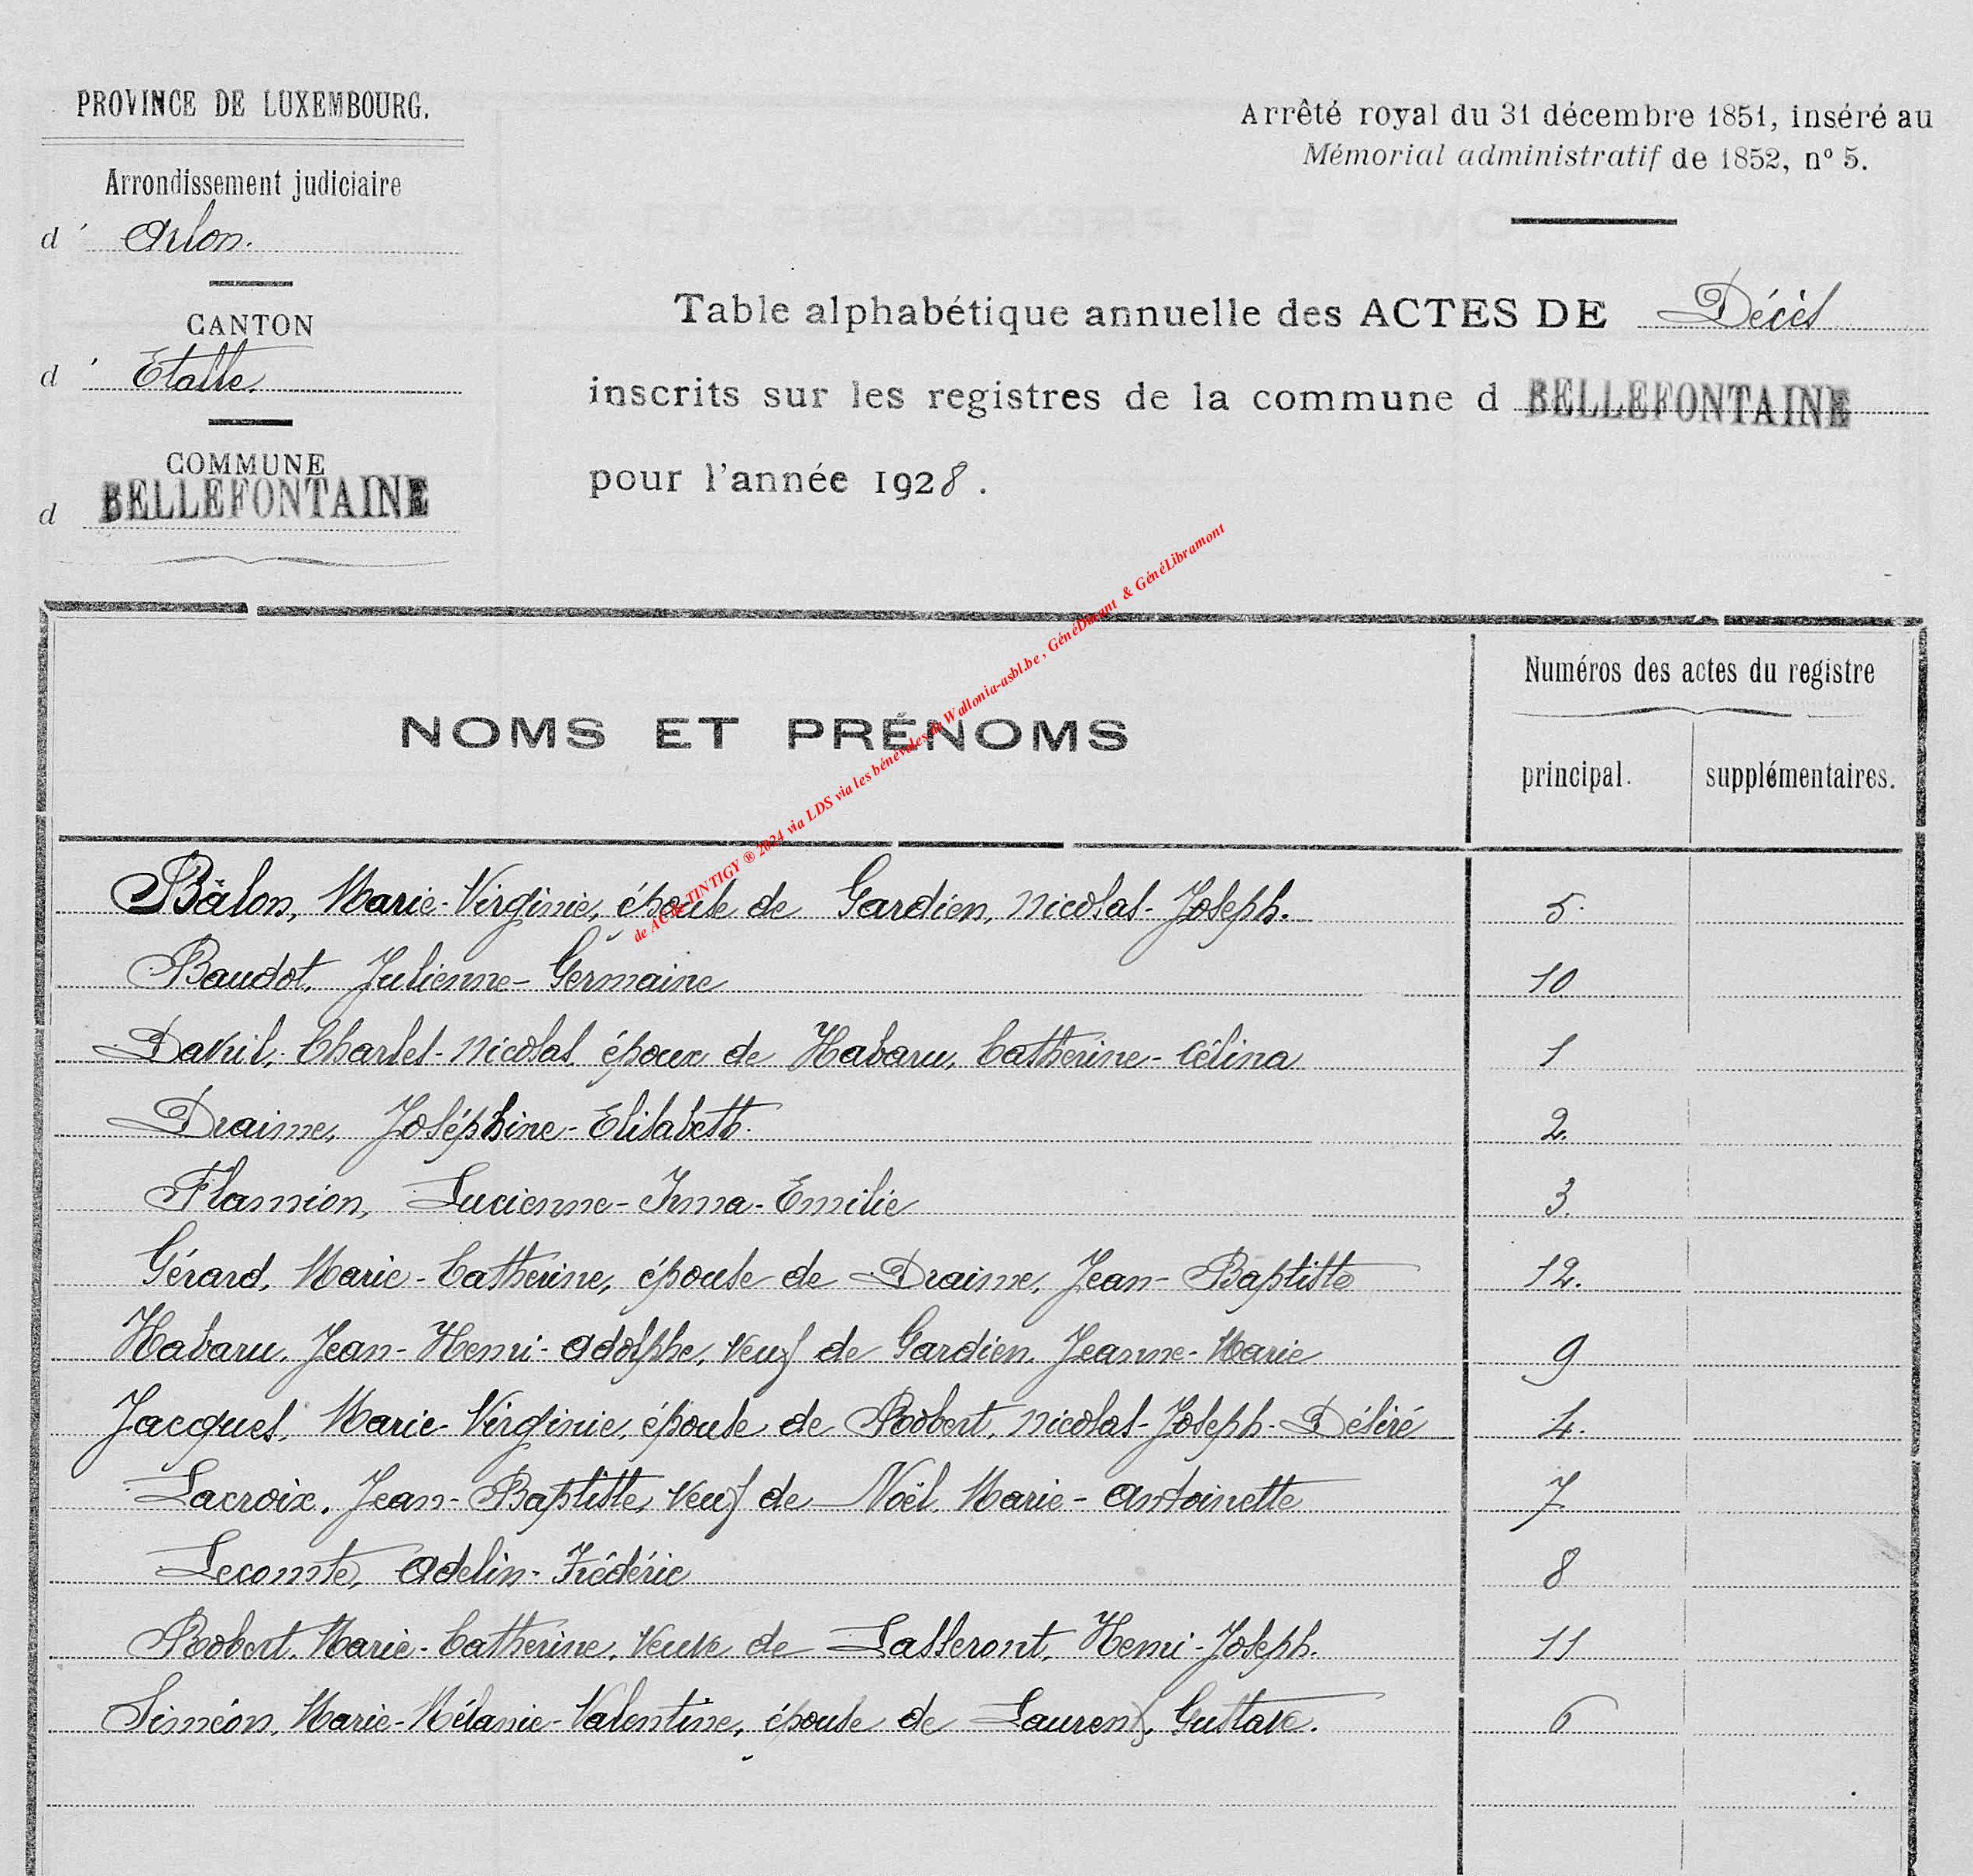 PROVINCE DE LUXEMBOURG.
Arrondissement judiciaire
d' Arlon.
CANTON
d' Etalle.
COMMUNE
d BELLEFONTAINE
Arrêté royal du 31 décembre 1851, inséré au
Mémorial administratif de 1852, nº 5.
Table alphabétique annuelle des ACTES DE Décès
inscrits sur les registres de la commune d BELLEFONTAINE
pour l'année 1928.
de AC de TINTIGY ® 2024 via LDS via les bénévoles de Wallonia-asbl.be, GénéDinant & GénéLibramont
NOMS ET PRÉNOMS
Numéros des actes du registre
principal.
supplémentaires.
Balon, Marie-Virginie, épouse de Gardien, Nicolas-Joseph. 5.
Baudot, Julienne-Germaine 10
David, Charles-Nicolas, époux de Habaru, Catherine-Célina 1
Draime, Joséphine-Elisabeth. 2.
Flamion, Lucienne-Irma-Emilie 3.
Gérard, Marie-Catherine, épouse de Draime, Jean-Baptiste 12.
Habaru, Jean-Henri-Adolphe, veuf de Gardien, Jeanne-Marie 9
Jacques, Marie-Virginie, épouse de Robert, Nicolas-Joseph-Désiré 4.
Lacroix, Jean-Baptiste, veuf de Noël, Marie-Antoinette 7
Lecomte, Adelin-Frédéric 8
Robert, Marie-Catherine, veuve de Lasseront, Henri-Joseph. 11
Siméon, Marie-Mélanie-Valentine, épouse de Laurent, Gustave. 6